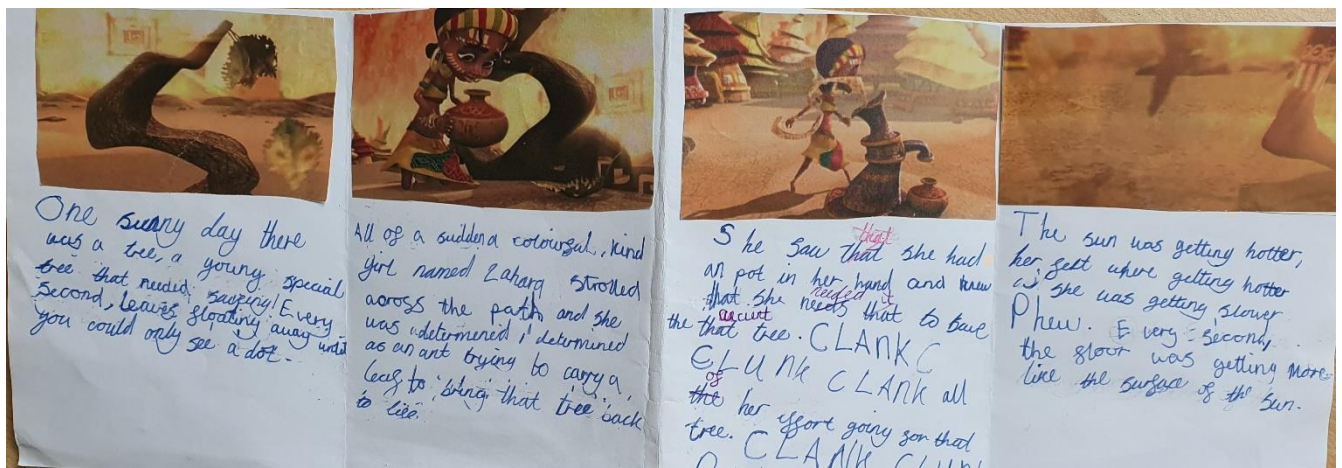 One sunny day there
was a tree, a young special
tree that needed saveing! Every
second, leaves floating away until
you could only see a dot.
All of a sudden a colourful, kind
girl named Zahara strolled
across the path and she
was determened, determined
as an ant trying to carry a
leaf to bring that tree back
to life.
that
She saw that she had
an pot in her hand and knew
needed it
that she needs that to save
the that tree. CLANK C
CLUNK CLANK all
of
the her effort going for that
tree. CLANK CLUNK
The sun was getting hotter,
her feet where getting hotter
as she was getting slower
Phew. Every second,
the floor was getting more
like the surface of the sun.